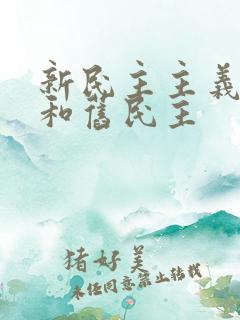 新民主主義
和舊民主
猪好美
未经同意禁止转载